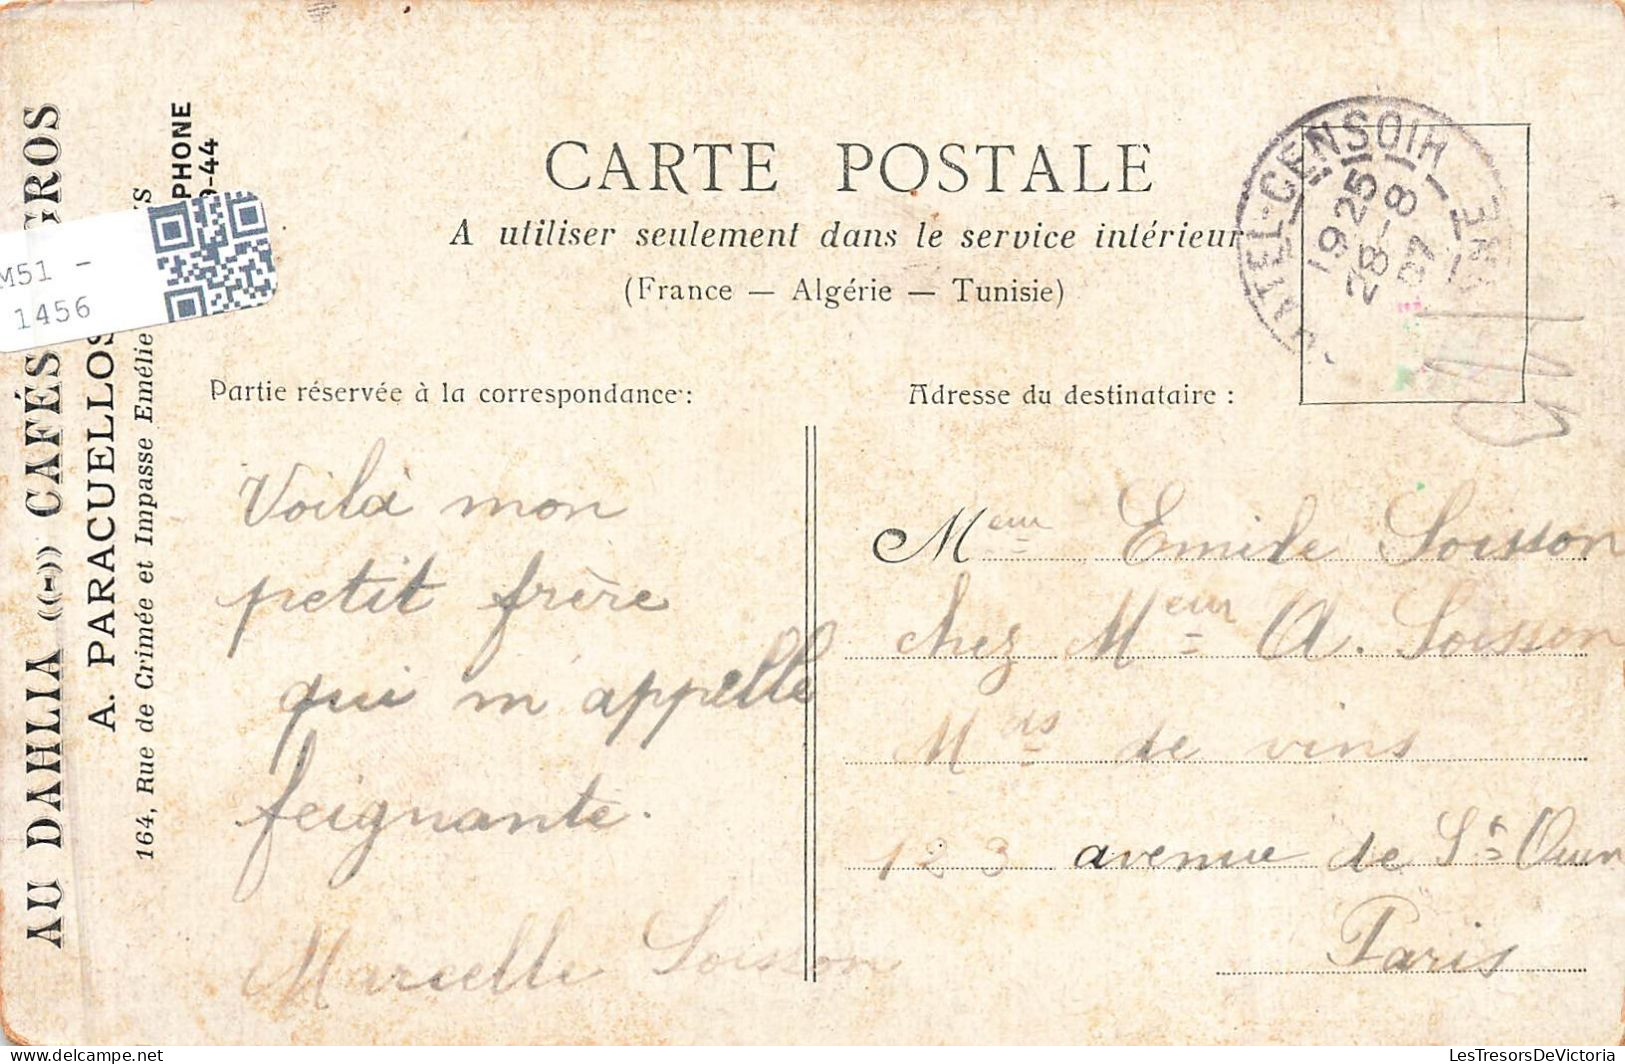 AU DAHLIA ((-)) CAFÉS GROS
A. PARACUELLOS
164, Rue de Crimée et Impasse Emélie
PHONE
9-44
M51 -
1456
CARTE POSTALE
A utiliser seulement dans le service intérieur
(France — Algérie — Tunisie)
CENSOIR
19 25
28-8
07
Partie réservée à la correspondance :
Adresse du destinataire :
Voilà mon
petit frère
qui m'appelle
feignante.
Marcelle Soisson
Meur Emile Soisson
chez Meur A. Soisson
Mds de vins
123 avenue de St Ouen
Paris
LesTresorsDeVictoria
delcampe.net